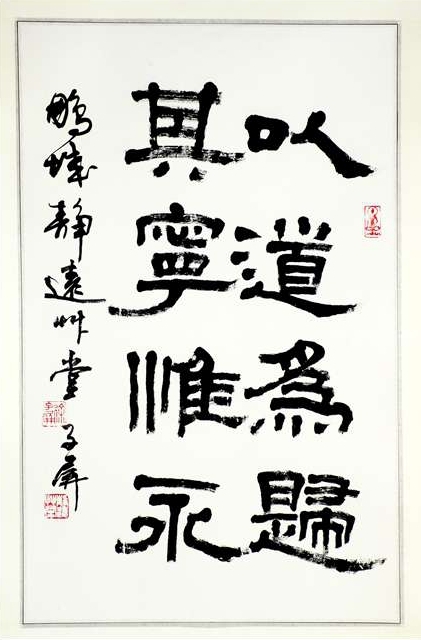 以道為歸
其寧惟永
鵬城靜遠艸堂
子屏